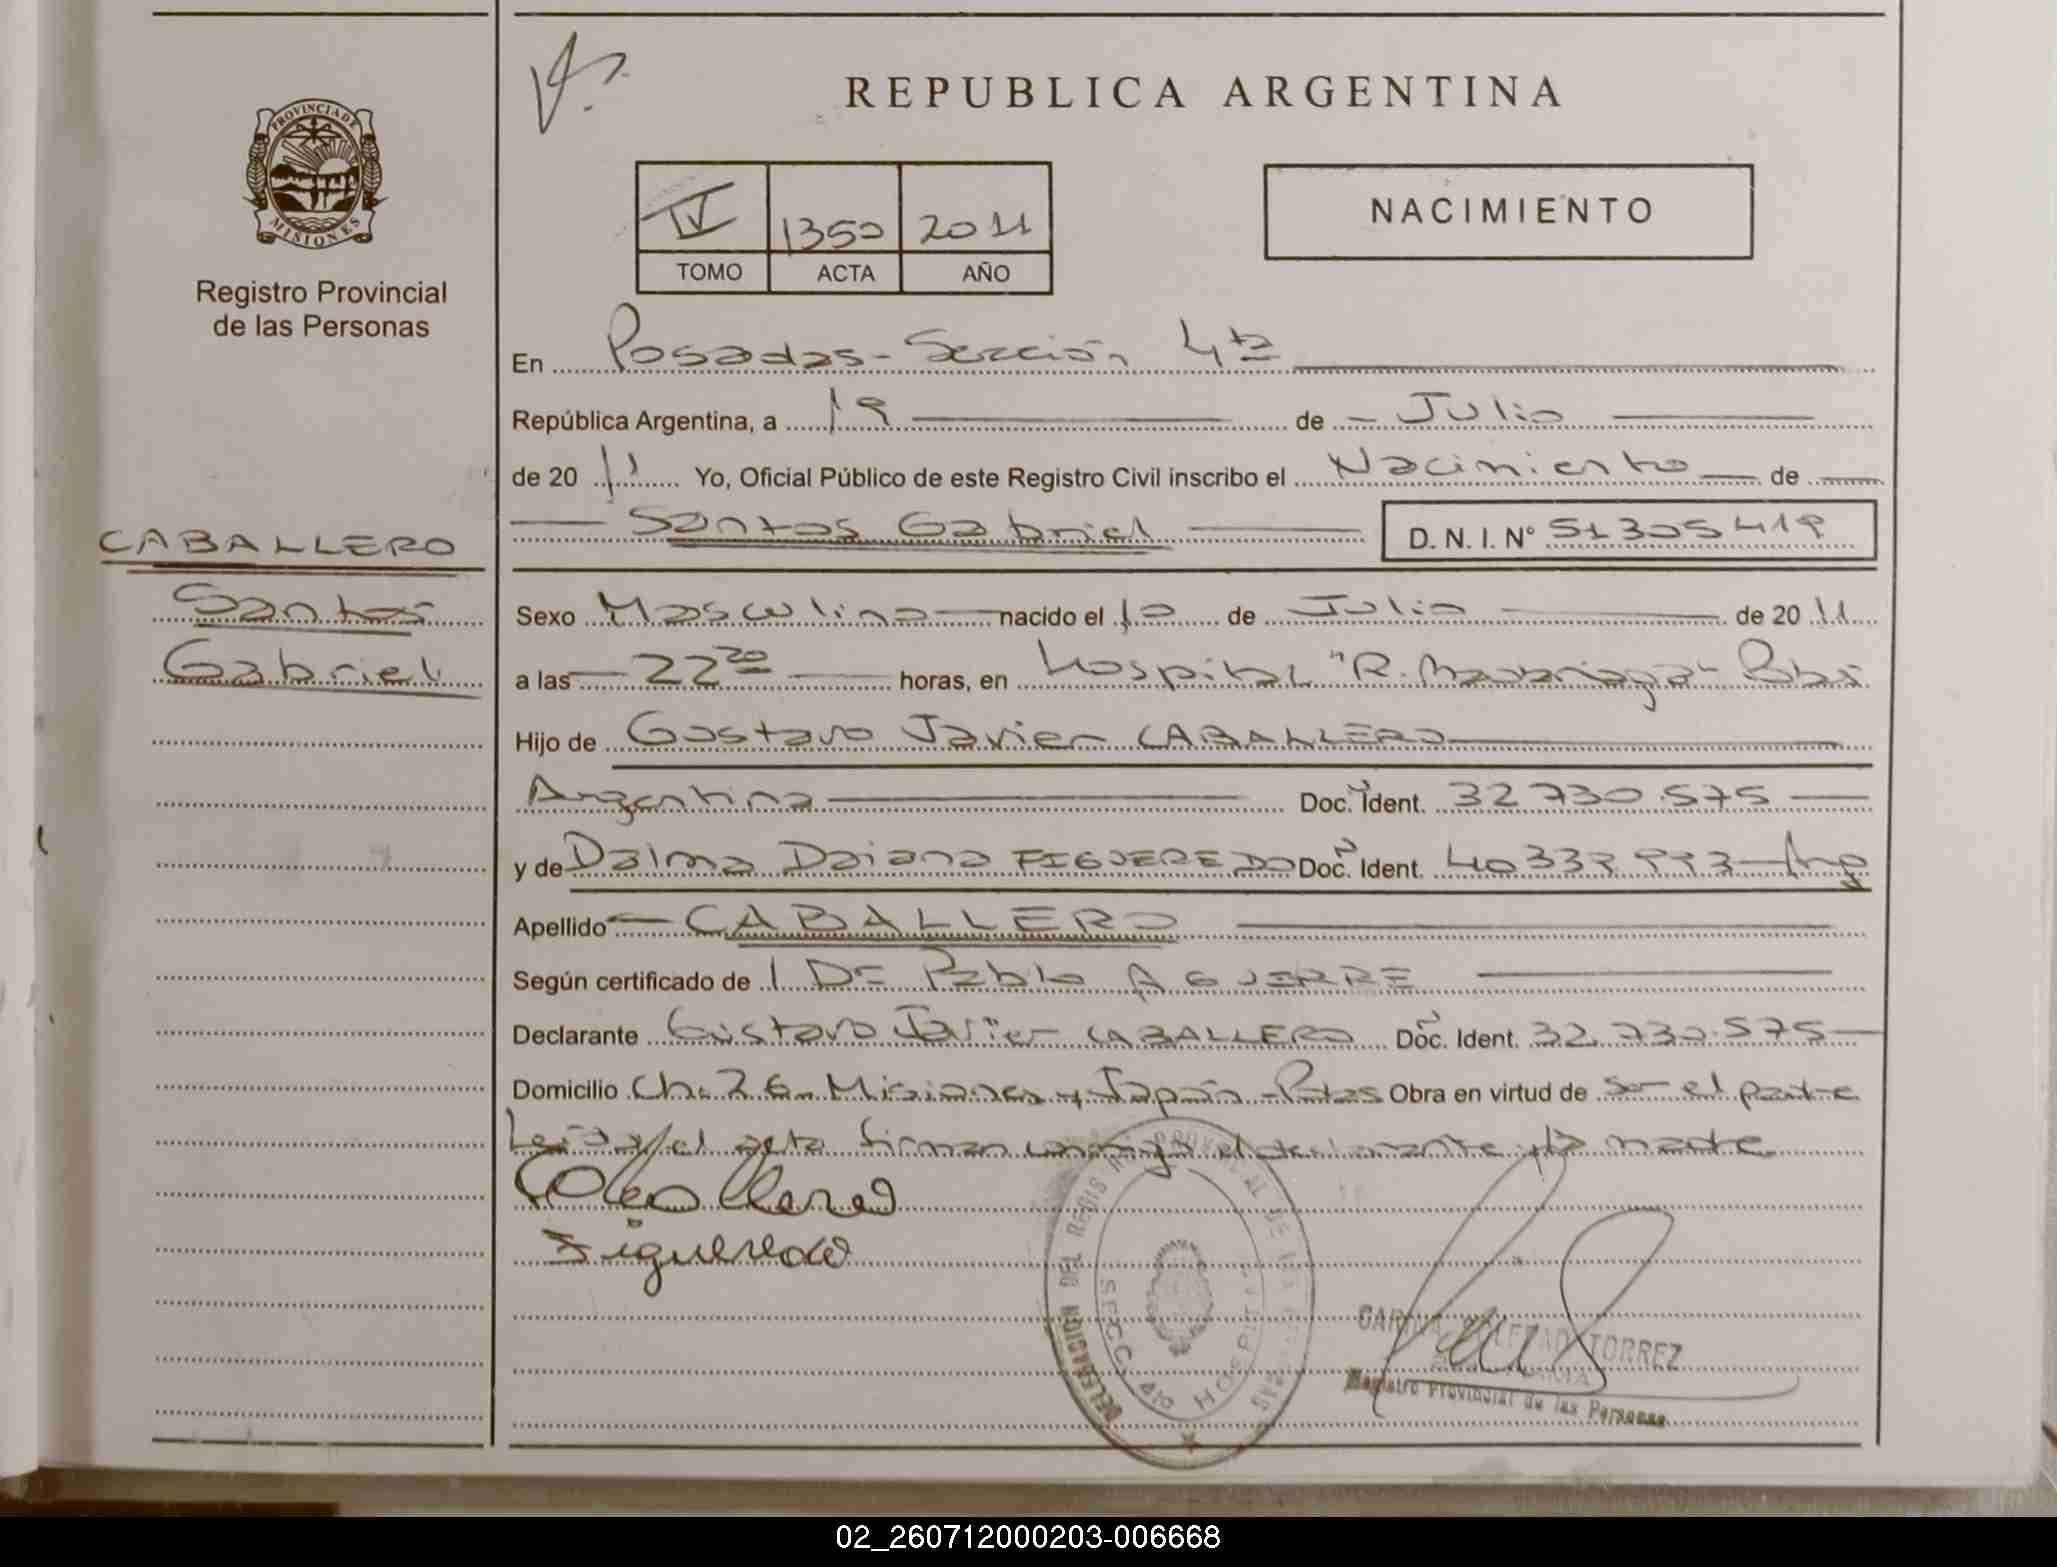 REPUBLICA ARGENTINA
PROVINCIA DE
MISIONES
Registro Provincial
de las Personas
IV 1350 2011
TOMO ACTA AÑO
NACIMIENTO
En Posadas - Sección 4ta
República Argentina, a 19 de Julio
de 20 11 Yo, Oficial Público de este Registro Civil inscribo el Nacimiento de
Santos Gabriel D. N. I. Nº 51305419
CABALLERO
Santos
Gabriel
Sexo Masculino nacido el 10 de Julio de 20 11
a las 22 20 horas, en Hospital "R. Madariaga"
Hijo de Gustavo Javier CABALLERO
Argentina Doc. Ident. 32 730.575
y de Dalma Daiana FIGUEREDO Doc. Ident. Arg
Apellido CABALLERO
Según certificado de Pablo AGUERRE
Declarante Gustavo Javier CABALLERO Doc. Ident. 32.730.575
Domicilio Ch. Misiones y Japón - Obra en virtud de ser el padre
el acta firman conmigo el declarante y la madre
Caballero
Figueredo
DELEGACION DEL REGISTRO PROVINCIAL DE LAS PERSONAS
SECC. 4ta HOSPITAL
TORREZ
Registro Provincial de las Personas
02_260712000203-006668